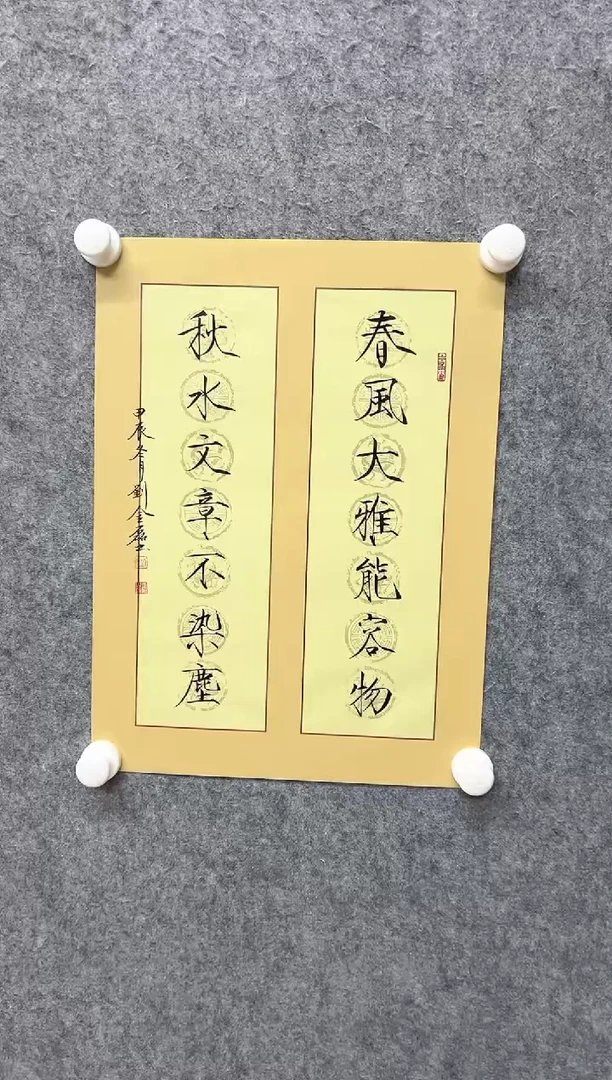 春風大雅能容物
秋水文章不染塵
甲辰冬月劉金磊書